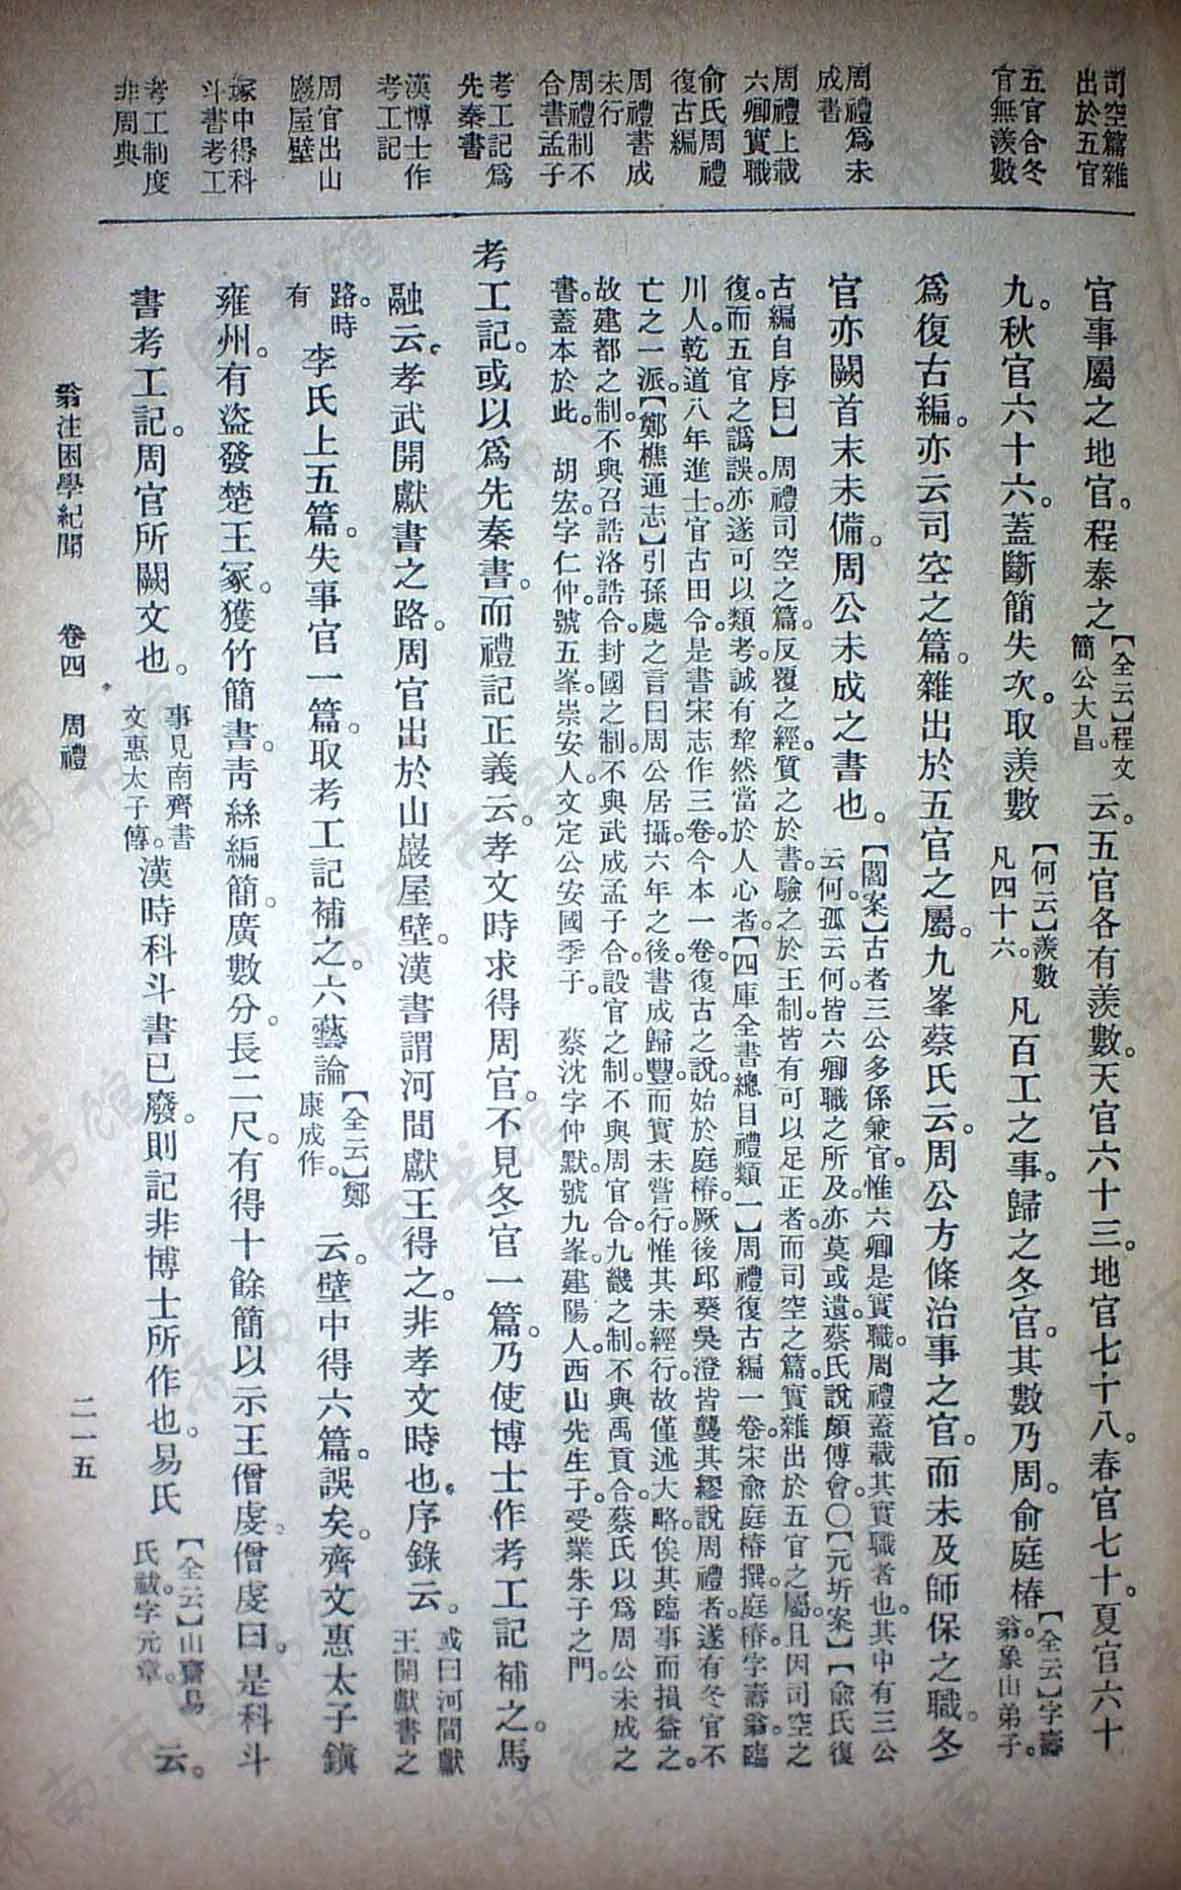 司空篇雜
出於五官
五官合冬
官無羨數
周禮爲未
成書
周禮上載
六卿實職
俞氏周禮
復古編
周禮書成
未行
周禮制不
合書孟子
考工記爲
先秦書
漢博士作
考工記
周官出山
巖屋壁
冢中得科
斗書考工
考工制度
非周典
官事屬之地官。程泰之【全云】程文簡公大昌。云。五官各有羨數。天官六十三。地官七十八。春官七十。夏官六十
九。秋官六十六。蓋斷簡失次。取羨數【何云】羨數凡四十六。凡百工之事。歸之冬官。其數乃周。俞庭椿【全云】字壽翁。象山弟子。
爲復古編。亦云司空之篇。雜出於五官之屬。九峯蔡氏云。周公方條治事之官。而未及師保之職。冬
官亦闕。首末未備。周公未成之書也。【閻案】古者三公多係兼官。惟六卿是實職。周禮蓋載其實職者也。其中有三公
云何。孤云何。皆六卿職之所及。亦莫或遺。蔡氏說頗傅會。○【元圻案】【俞氏復
古編自序曰】周禮司空之篇。反覆之經。質之於書。驗之於王制。皆有可以足正者。而司空之篇。實雜出於五官之屬。且因司空之
復。而五官之譌誤。亦遂可以類考。誠有犂然當於人心者。【四庫全書總目禮類一】周禮復古編一卷。宋俞庭椿撰。庭椿。字壽翁。臨
川人。乾道八年進士。官古田令。是書宋志作三卷。今本一卷。復古之說。始於庭椿。厥後邱葵吳澄皆襲其繆說。周禮者。遂有冬官不
亡之一派。【鄭樵通志】引孫處之言曰。周公居攝。六年之後。書成歸豐。而實未嘗行。惟其未經行。故僅述大略。俟其臨事而損益之。
故建都之制。不與召誥洛誥合。封國之制。不與武成孟子合。設官之制。不與周官合。九畿之制。不與禹貢合。蔡氏以爲周公未成之
書。蓋本於此。　胡宏。字仁仲。號五峯。崇安人。文定公安國季子。　蔡沈字仲默。號九峯。建陽人。西山先生子。受業朱子之門。
考工記。或以爲先秦書。而禮記正義云。孝文時求得周官。不見冬官一篇。乃使博士作考工記補之。馬
融云。孝武開獻書之路。周官出於山巖屋壁。漢書謂河間獻王得之。非孝文時也。序錄云。或曰河間獻王開獻書之
路。時有李氏上五篇。失事官一篇。取考工記補之。六藝論【全云】鄭康成作。云。壁中得六篇。誤矣。齊文惠太子鎭
雍州。有盜發楚王冢。獲竹簡書。靑絲編簡。廣數分。長二尺。有得十餘簡以示王僧虔。僧虔曰。是科斗
書考工記。周官所闕文也。事見南齊書文惠太子傳。漢時科斗書已廢。則記非博士所作也。易氏【全云】山齋易氏祓字元章。云。
翁注困學紀聞　卷四　周禮　二一五